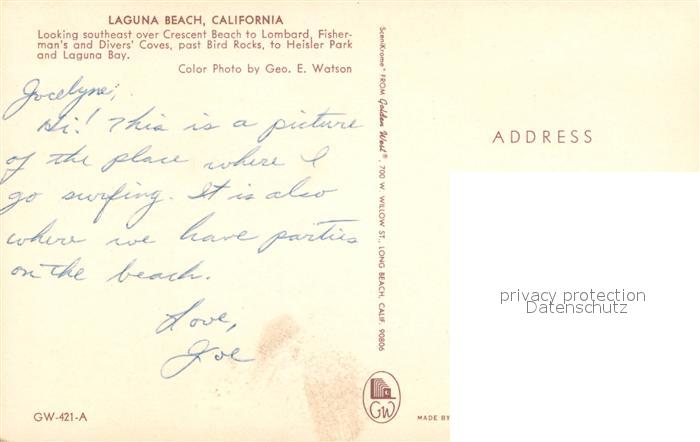 LAGUNA BEACH, CALIFORNIA
Looking southeast over Crescent Beach to Lombard, Fisher-
man's and Divers' Coves, past Bird Rocks, to Heisler Park
and Laguna Bay.
Color Photo by Geo. E. Watson
Jocelyne;
Hi! This is a picture
of the place where I
go surfing. It is also
where we have parties
on the beach.
Love,
Joe
GW-421-A
SceniKrome® FROM Golden West®, 700 W. WILLOW ST., LONG BEACH, CALIF. 90806
GW
ADDRESS
privacy protection
Datenschutz
MADE BY